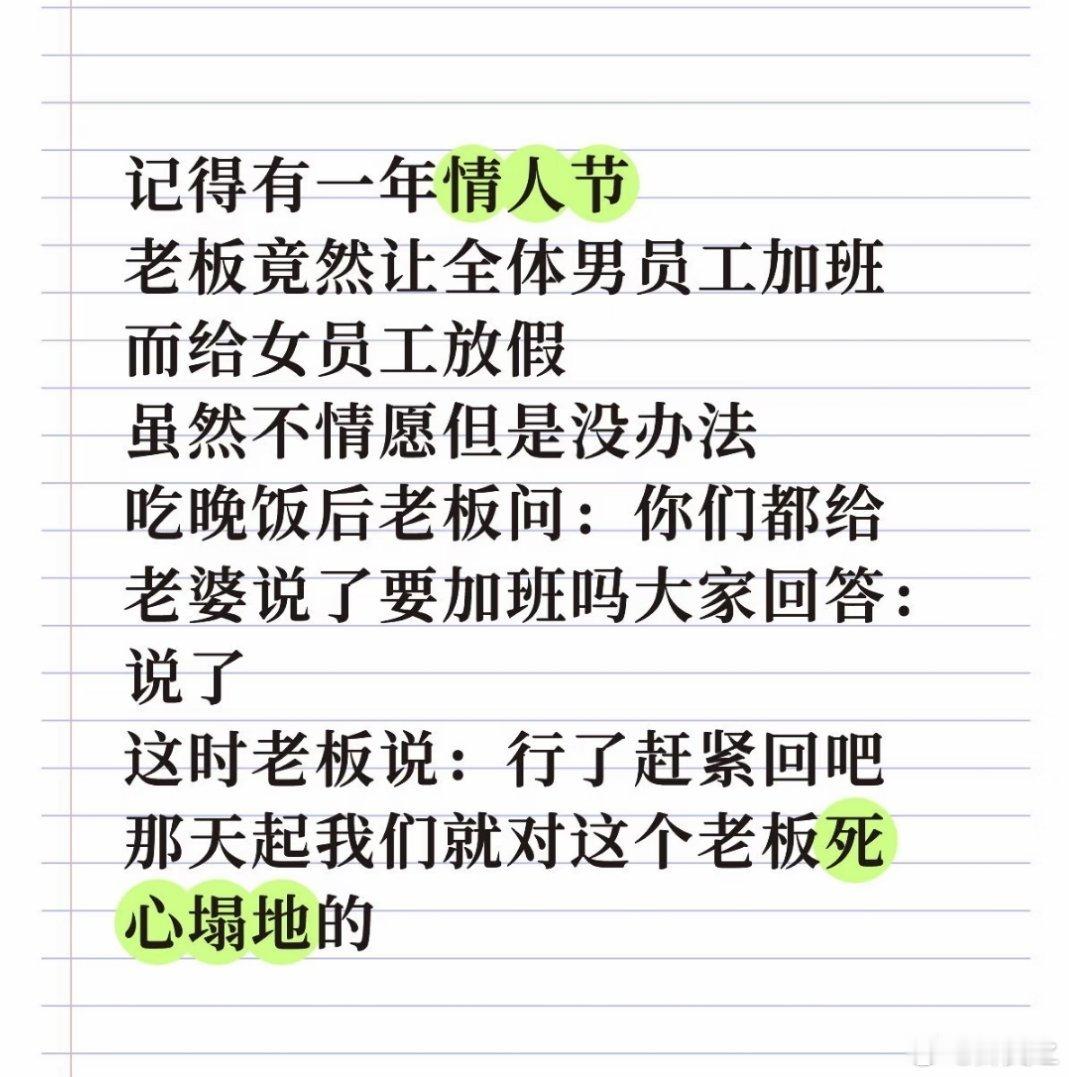 记得有一年情人节
老板竟然让全体男员工加班
而给女员工放假
虽然不情愿但是没办法
吃晚饭后老板问：你们都给
老婆说了要加班吗大家回答：
说了
这时老板说：行了赶紧回吧
那天起我们就对这个老板死
心塌地的